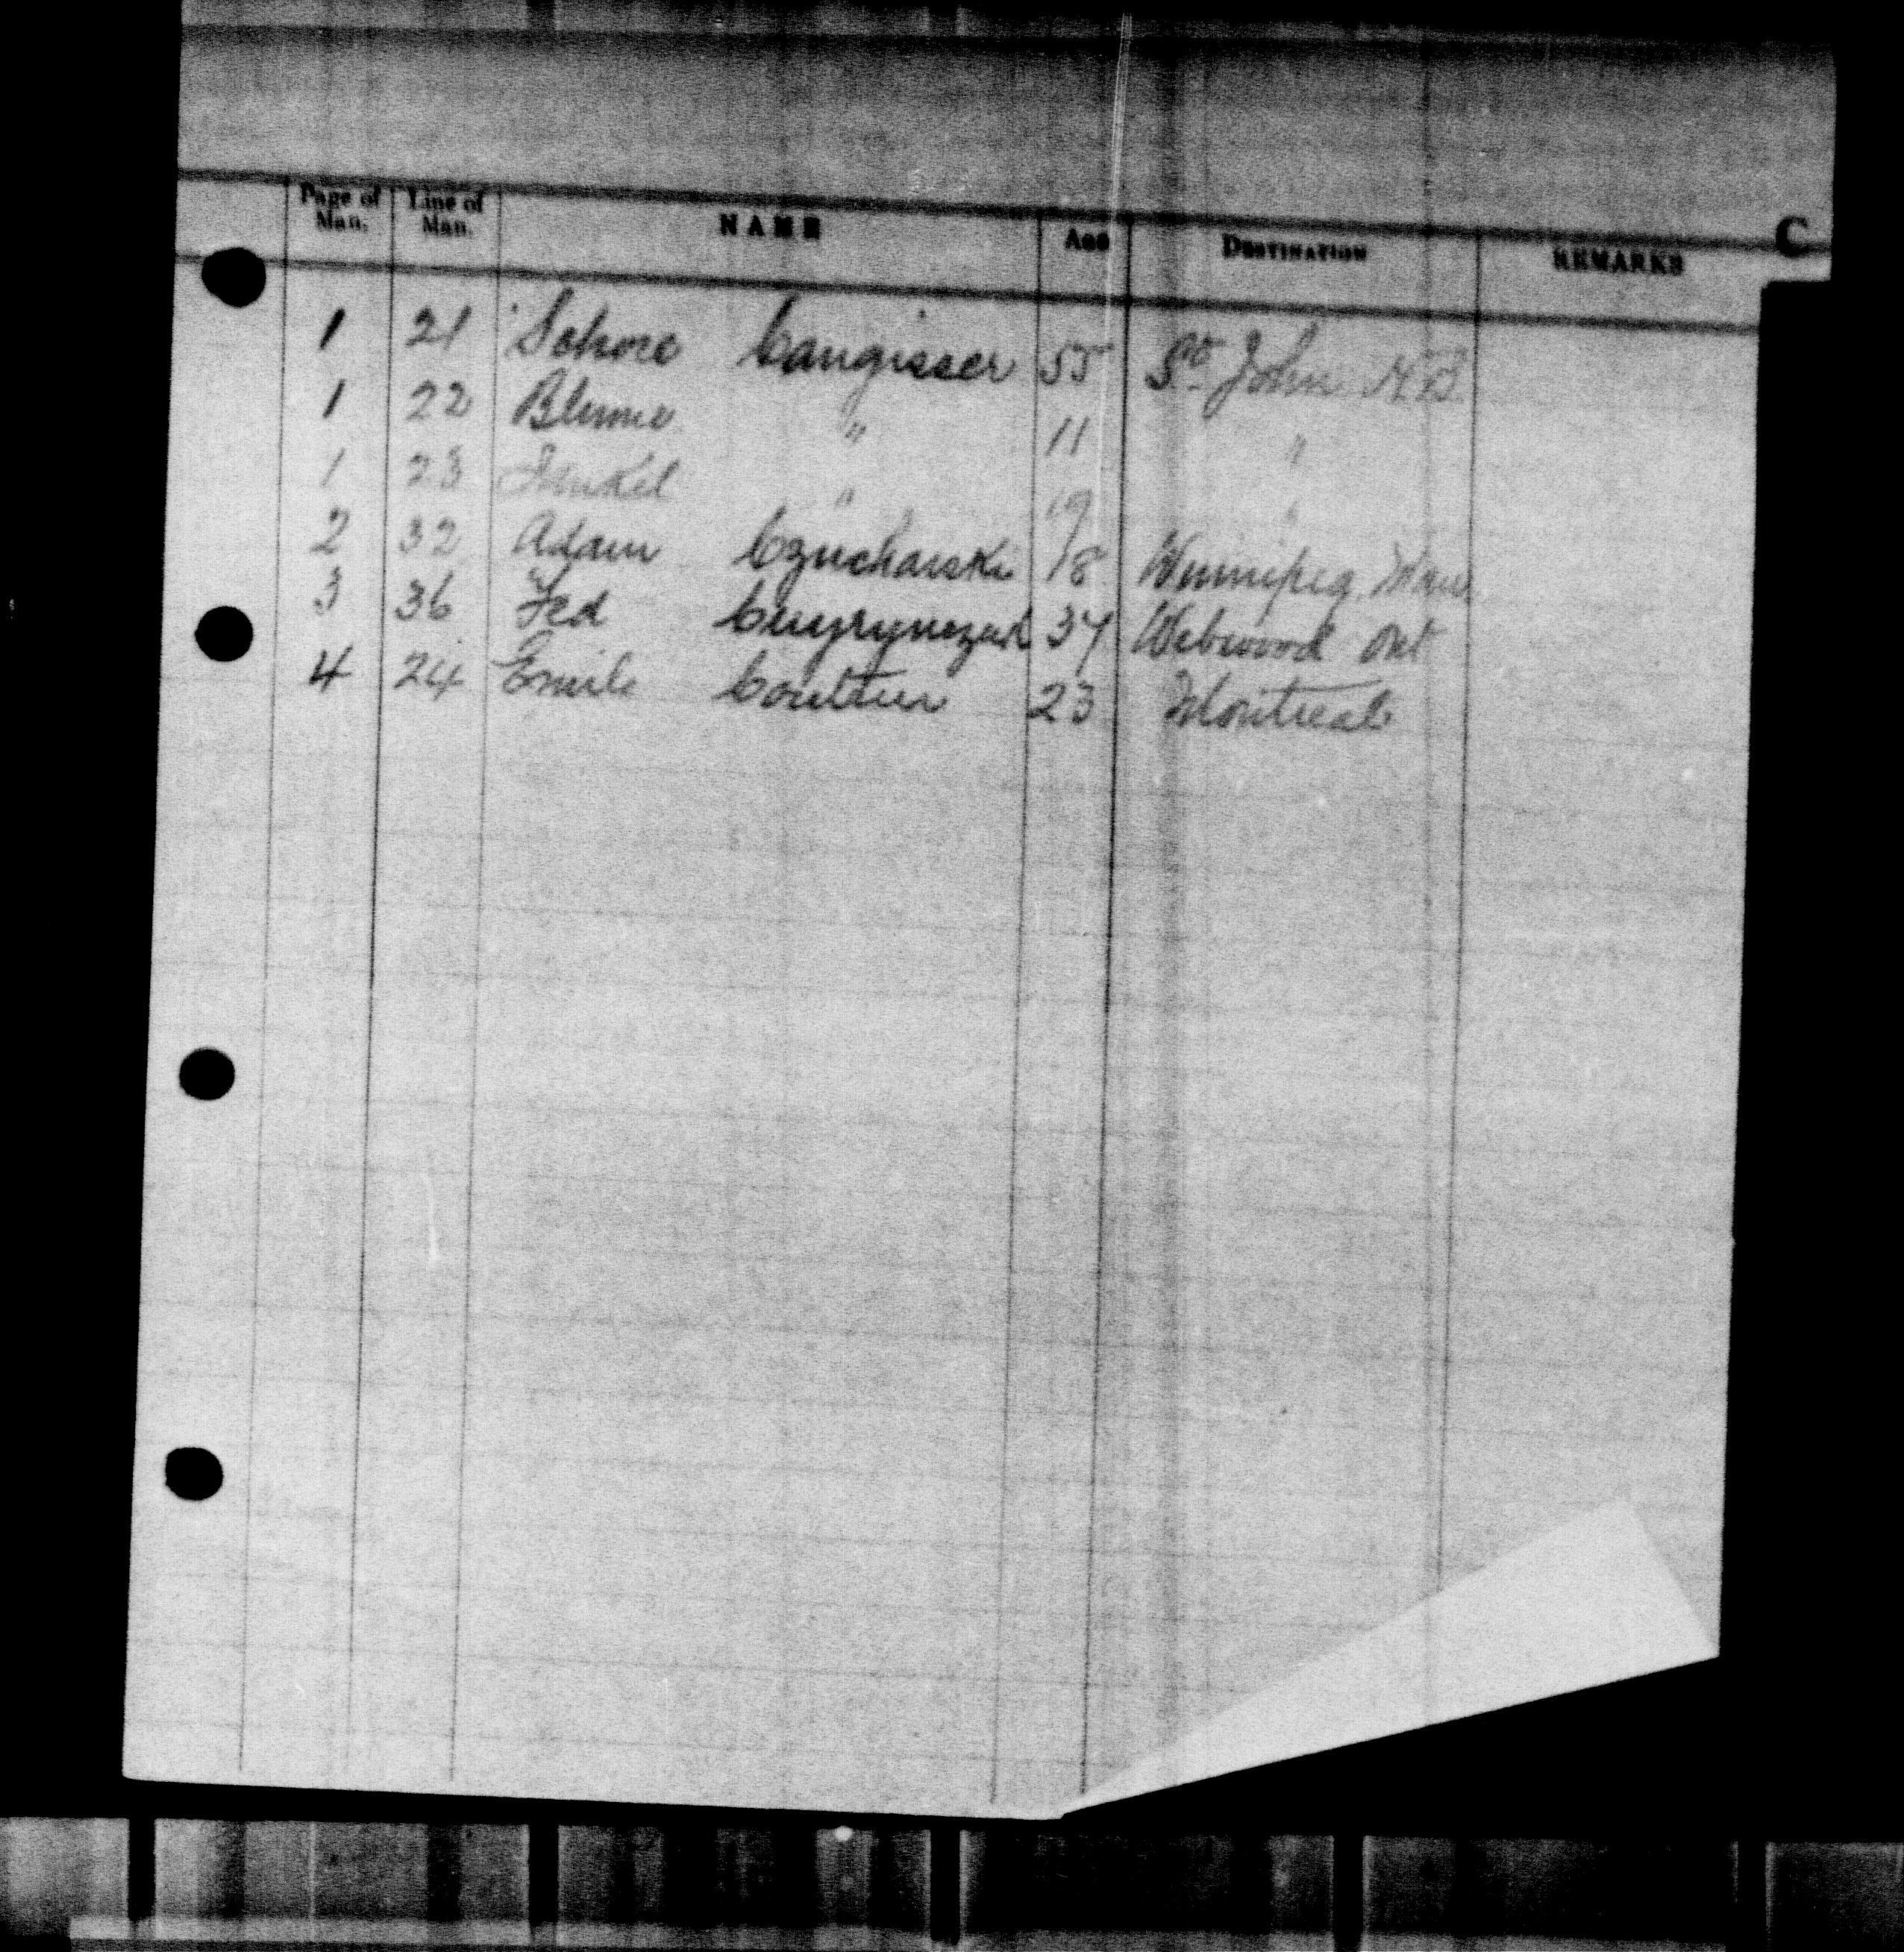 C
Page of Man. Line of Man. NAME Age DESTINATION REMARKS
1 21 Schore Cangisser 55 St John N.B.
1 22 Blume " 11 "
1 23 " 19 "
2 32 Adam 18 Winnipeg Man
3 36 Fed 37 Webwood Ont
4 24 Emile 23 Montreal